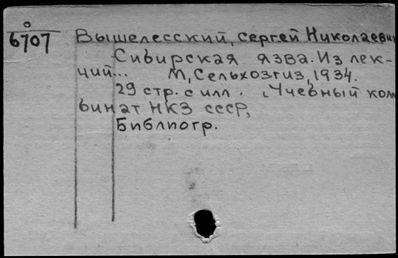 6707
Вышелесский, Сергей Николаевич
Сибирская язва. Из лек-
ций... М, Сельхозгиз, 1934.
29 стр. с илл. (Учебный ком
бинат НКЗ СССР,
Библиогр.